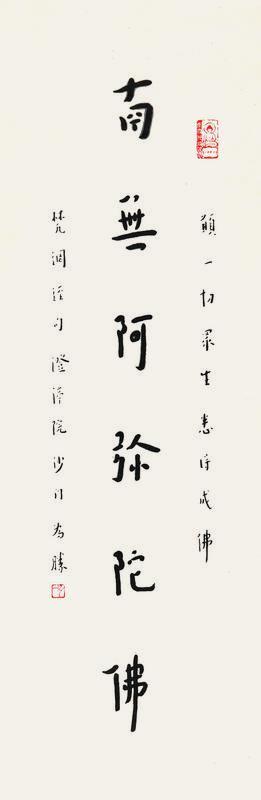 願一切眾生悉得成佛
南無阿弥陀佛
梵網經句 澄渟院沙門為勝